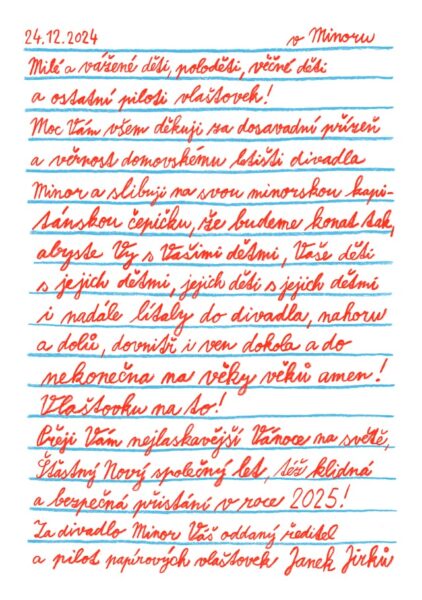 24.12.2024 v Minoru
Milé a vážené děti, poloděti, věčné děti
a ostatní piloti vlaštovek!
Moc Vám všem děkuji za dosavadní přízeň
a věrnost domovskému letišti divadla
Minor a slibuji na svou minorskou kapi-
tánskou čepičku, že budeme konat tak,
abyste Vy s Vašimi dětmi, Vaše děti
s jejich dětmi, jejich děti s jejich dětmi
i nadále lítaly do divadla, nahoru
a dolů, dovnitř i ven dokola a do
nekonečna na věky věků amen!
Vlaštovku na to!
Přeji Vám nejlaskavější Vánoce na světě,
Šťastný Nový společný let, též klidná
a bezpečná přistání v roce 2025!
Za divadlo Minor Váš oddaný ředitel
a pilot papírových vlaštovek Janek Jirků